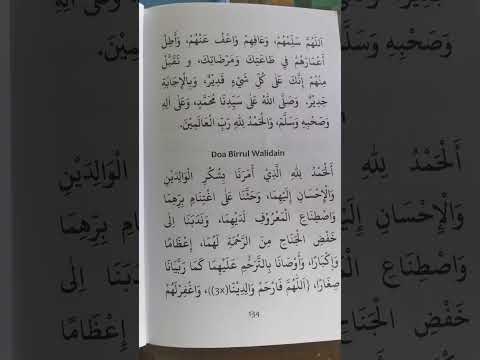 اَللّٰهُمَّ سَلِّمْهُمْ، وَعَافِهِمْ وَاعْفُ عَنْهُمْ، وَأَطِلْ
أَعْمَارَهُمْ فِي طَاعَتِكَ وَمَرْضَاتِكَ، و تَقَبَّلْ
مِنْهُمْ إِنَّكَ عَلَى كُلِّ شَيْءٍ قَدِيْرٌ، وَبِالْإِجَابَةِ
جَدِيْرٌ. وَصَلَّى اللهُ عَلَى سَيِّدِنَا مُحَمَّدٍ، وَعَلَى آلِهِ
وَصَحْبِهِ وَسَلَّمَ، وَالْحَمْدُ لِلهِ رَبِّ الْعَالَمِيْنَ.
Doa Birrul Walidain
أَلْحَمْدُ لِلهِ الَّذِيْ أَمَرَنَا بِشُكْرِ الْوَالِدَيْنِ
وَالْإِحْسَانِ إِلَيْهِمَا، وَحَثَّنَا عَلَى اغْتِنَامِ بِرِّهِمَا
وَاصْطِنَاعِ الْمَعْرُوْفِ لَدَيْهِمَا، وَنَدَبَنَا اِلَى
خَفْضِ الْجَنَاحِ مِنَ الرَّحْمَةِ لَهُمَا، إِعْظَامًا
وَإِكْبَارًا، وَأَوْصَانَا بِالتَّرَحُّمِ عَلَيْهِمَا كَمَا رَبَّيَانَا
صِغَارًا، {اَللّٰهُمَّ فَارْحَمْ وَالِدِيْنَا(3x)}، وَاغْفِرْ لَهُمْ
134